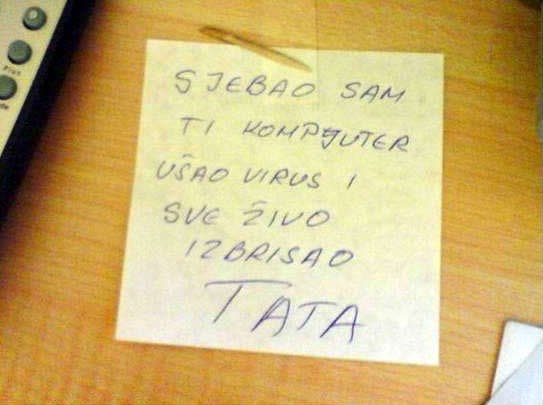 SJEBAO SAM
TI KOMPJUTER
UŠAO VIRUS I
SVE ŽIVO
IZBRISAO
TATA